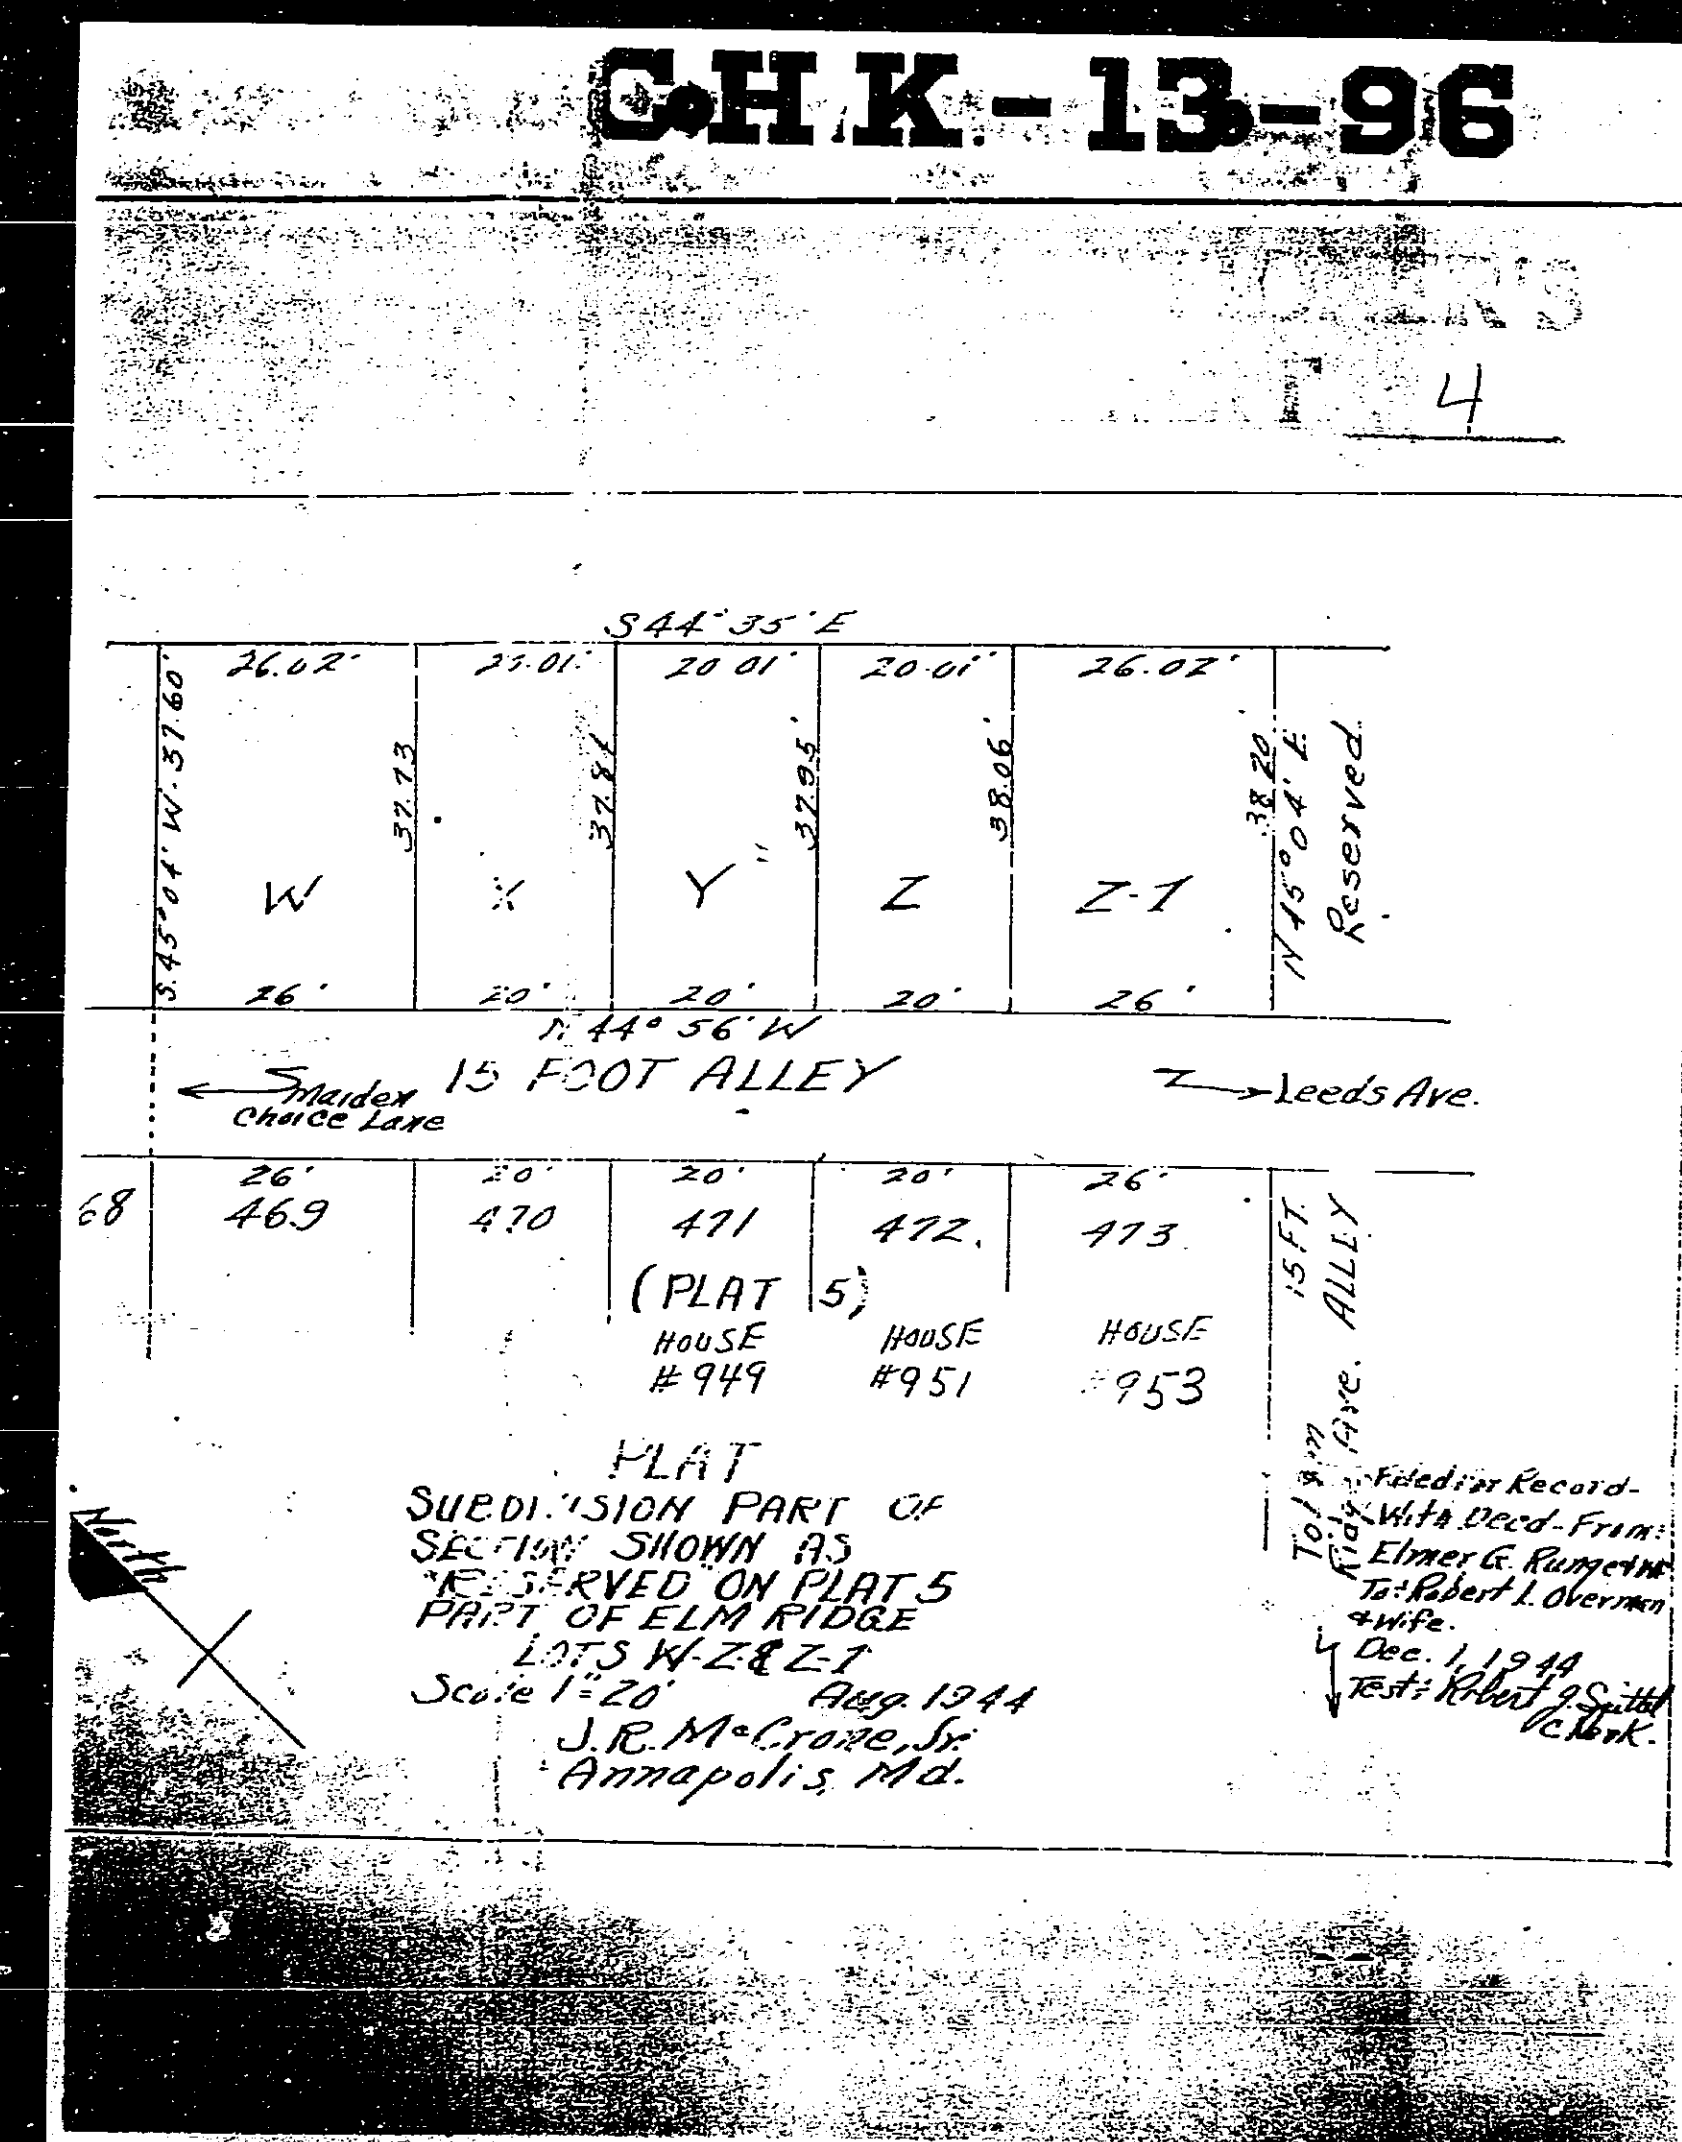 C.H.K.-13-96
4
S 44° 35' E
26.02' 20.01' 20.01' 20.01' 26.02'
S. 45° 04' W. 37.60'
37.73
37.84
37.95'
38.06'
38.20
N 45° 04' E
Reserved
W X Y Z Z-1
26' 20' 20' 20' 26'
N 44° 56' W
15 FOOT ALLEY
Maiden
Choice Lane
Leeds Ave.
26' 20' 20' 20' 26'
68 469 470 471 472 473
(PLAT 5)
HOUSE HOUSE HOUSE
#949 #951 #953
15 FT. ALLEY
Ave.
PLAT
SUBDIVISION PART OF
SECTION SHOWN AS
"RESERVED" ON PLAT 5
PART OF ELM RIDGE
LOTS W-Z & Z-1
Scale 1"=20' Aug. 1944
J. R. McCrone, Jr.
Annapolis, Md.
North
Filed for Record-
With Deed-From:
Elmer G. Runge
To: Robert L. Overman
& Wife.
Dec. 1, 1944
Test: Robert J. Spittel
Clerk.